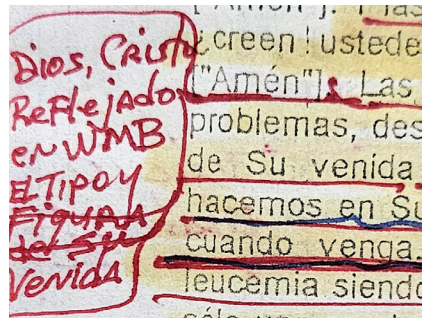 Dios, Cristo
Reflejado
en WMB
El Tipo y
Figura
de Su
Venida
["Amén"]. Mas
¿creen! ustede
["Amén"]. Las
problemas, des
de Su venida
hacemos en Su
cuando venga.
leucemia siendo